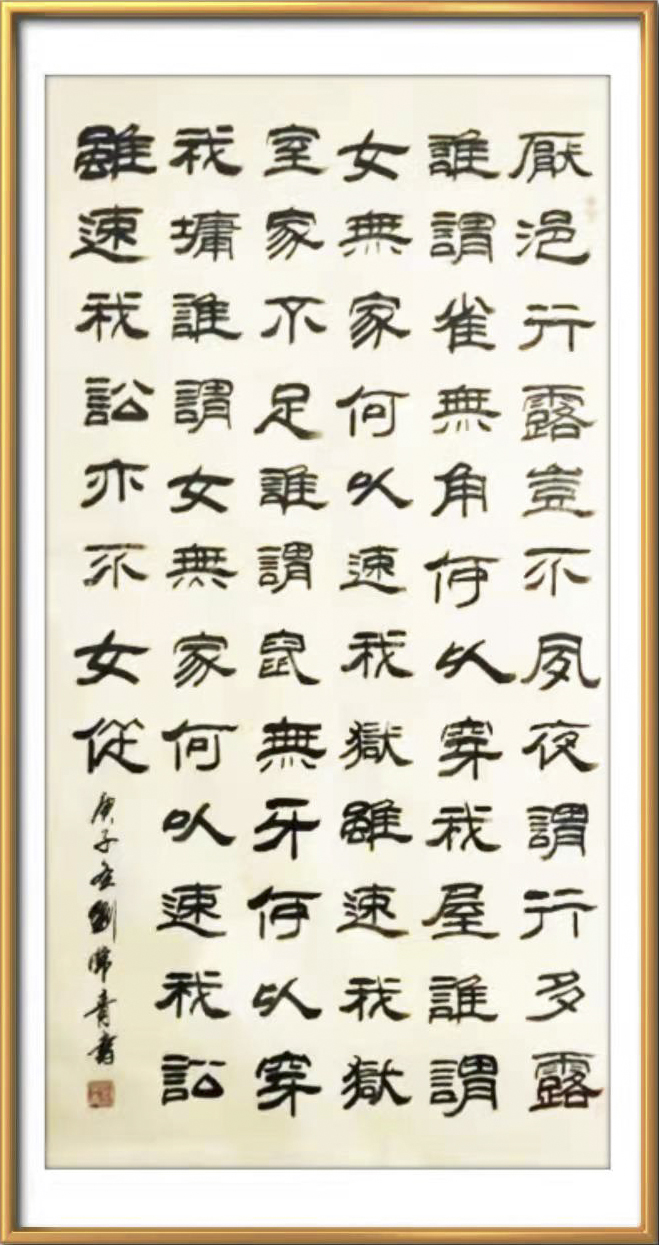 厭浥行露豈不夙夜謂行多露
誰謂雀無角何以穿我屋誰謂
女無家何以速我獄雖速我獄
室家不足誰謂鼠無牙何以穿
我墉誰謂女無家何以速我訟
雖速我訟亦不女從
庚子劉青書